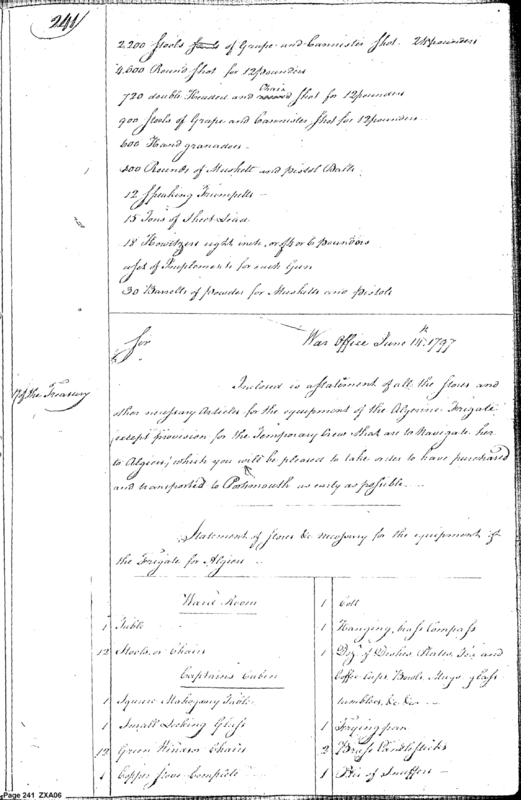 241
2.200 Stools of Grape and Cannister Shot. 24 pounders
4.600 Round Shot for 12 pounders
720 double Headed and Chain Shot for 12 pounders
900 Stools of Grape and Cannister Shot for 12 pounders
600 Hand granadoes
Rounds of Muskett and pistol Balls
12 Speaking Trumpetts
15 Tons of Sheet Lead
18 Howitzers eight inch, or 4 or 6 pounders
a set of Implements for each Gun
30 Barrells of powder for Musketts and pistols
War Office June 14th. 1797
Sir
of the Treasury
Inclosed is a statement of all the stores and
other necessary Articles for the equipment of the Algerine Frigate
(except provision for the Temporary Crew that are to navigate her
to Algiers) which you will be pleased to take order to have purchased
and transported to Portsmouth as early as possible
Statement of stores &c necessary for the equipment of
the Frigate for Algiers
Ward Room
1 Table
12 Stools or Chairs
Captains Cabin
1 Square Mahogany Table
1 Small Looking Glass
12 Green Windsor Chairs
1 Copper Stove Complete
1 Cott
1 Hanging brass Compass
1 Doz. of Dishes, Plates, Tea and
Coffee cups, Bowls, Mugs, glass
tumblers, &c &c
1 Frying pan
2 Brass Candlesticks
1 Pair of Snuffers
Page 241 ZXA06